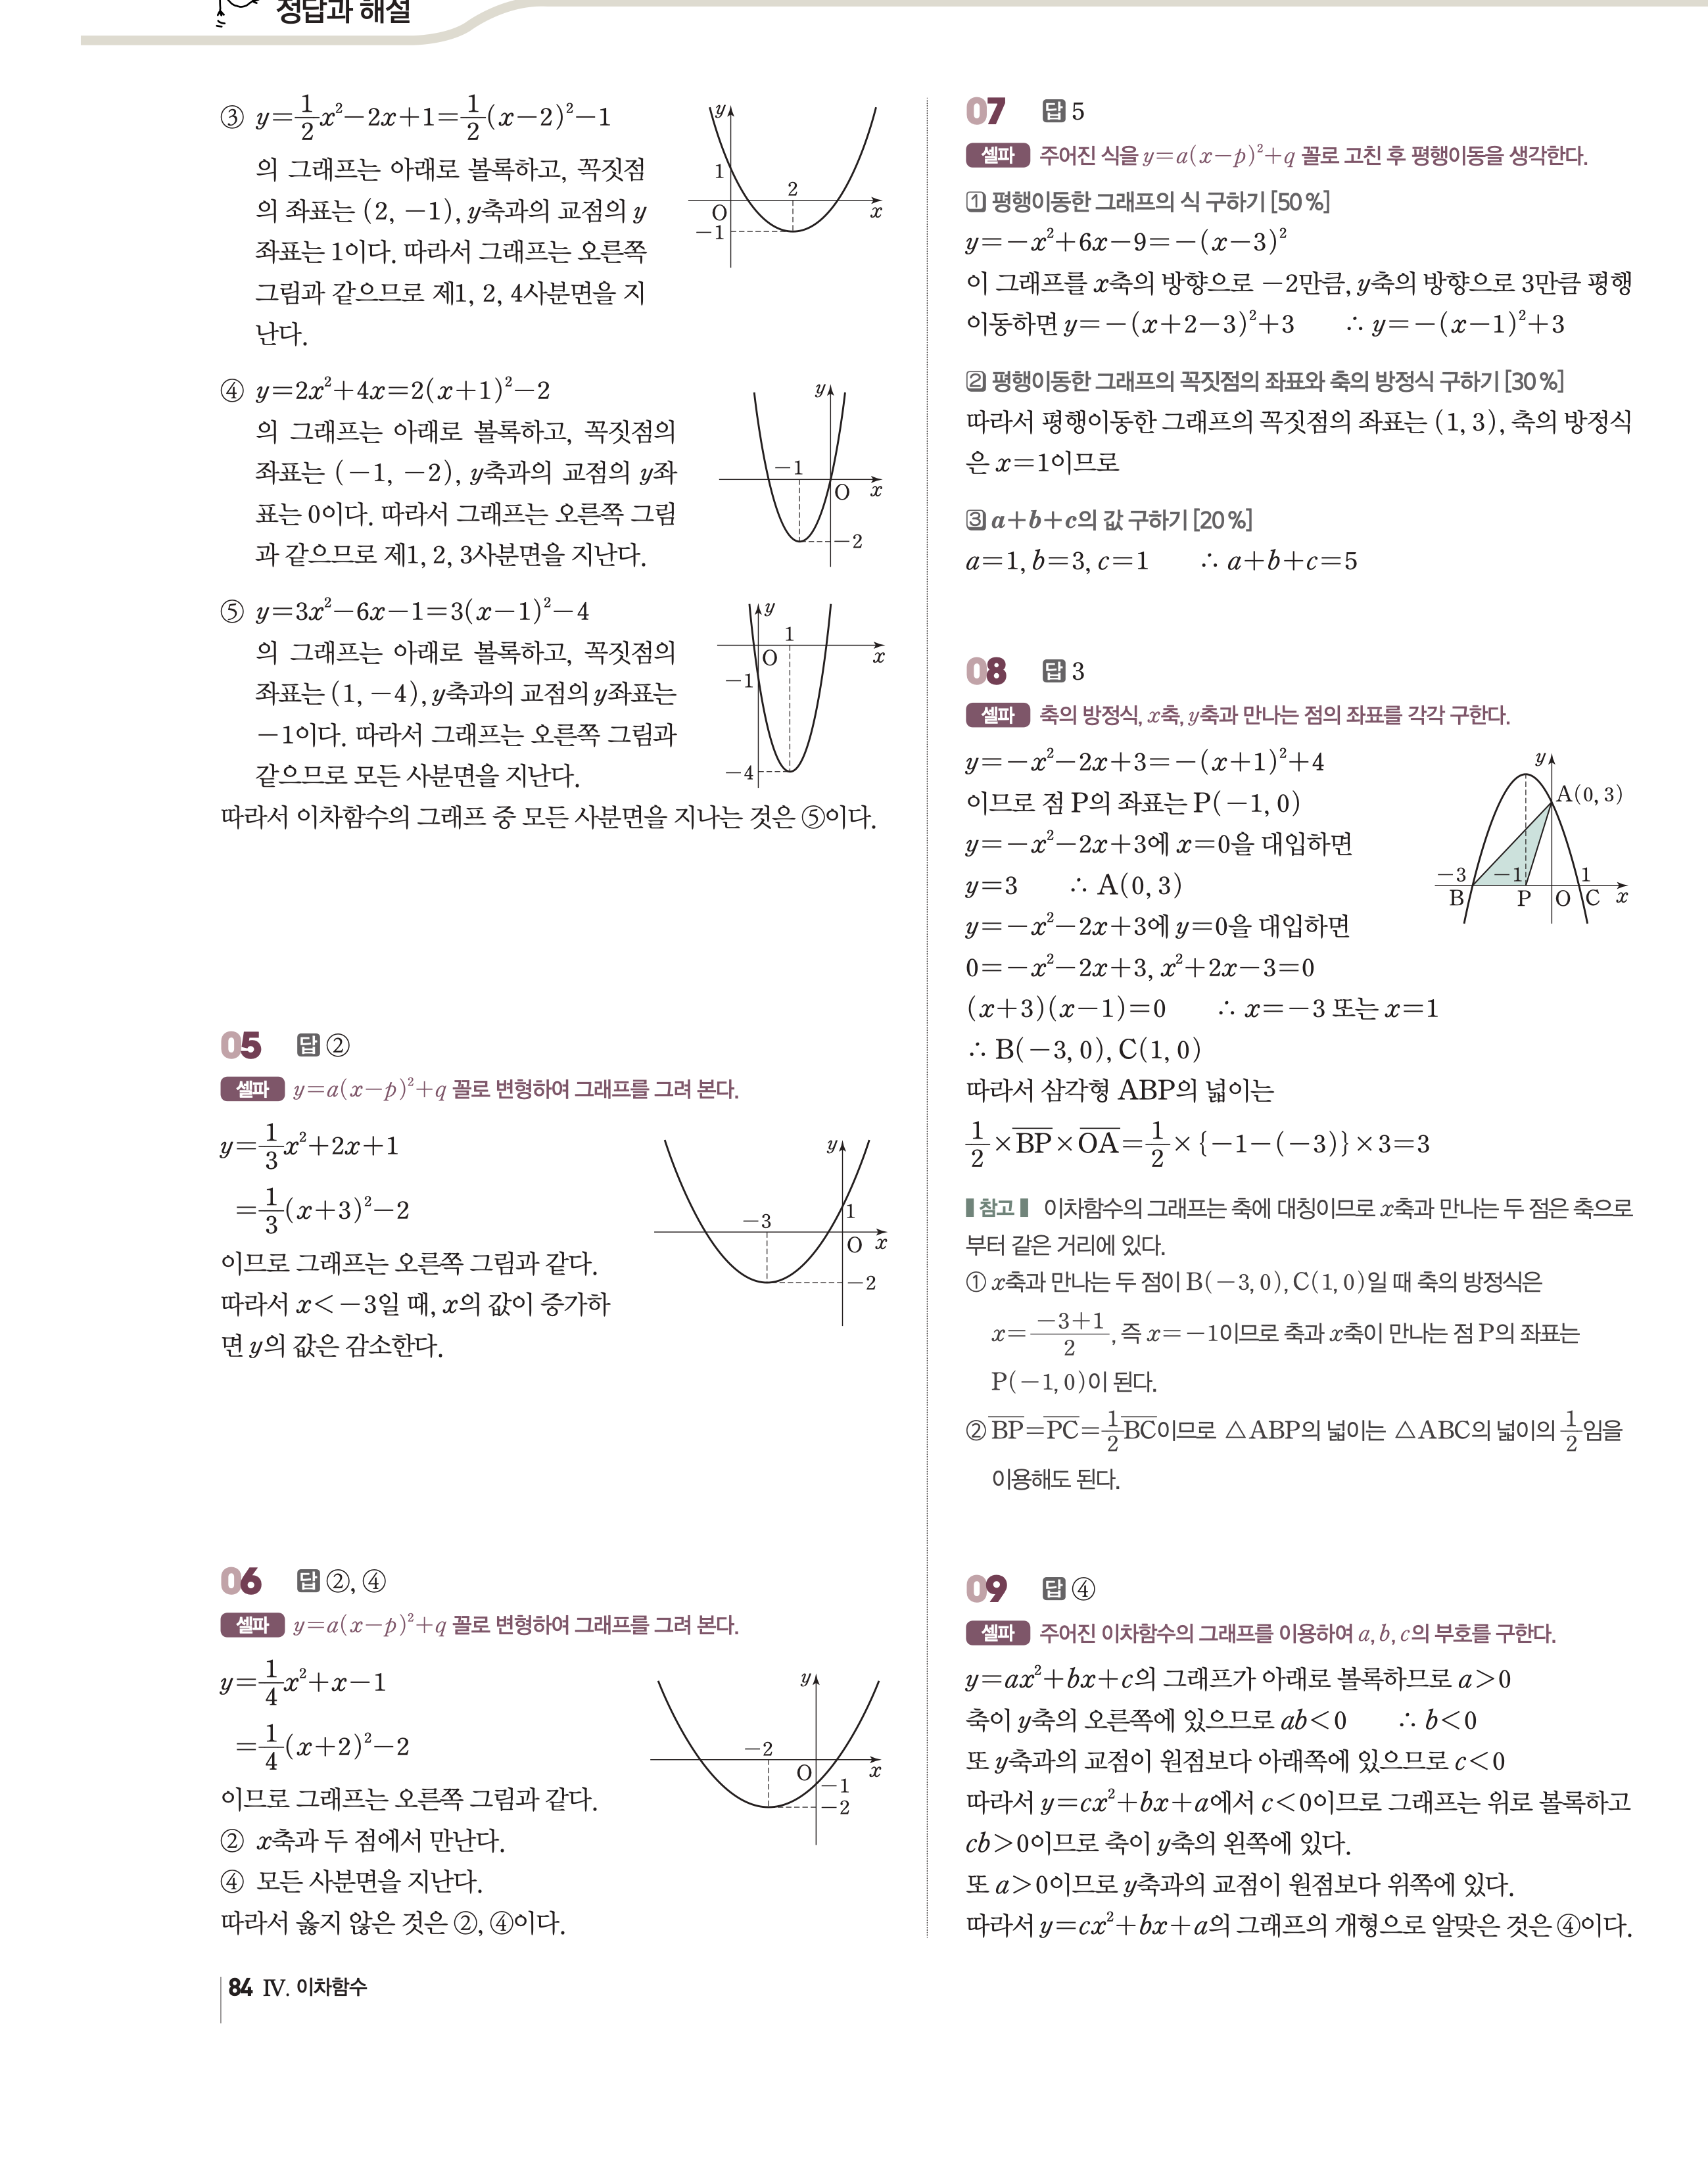 정답과 해설
③ y=1/2x²-2x+1=1/2(x-2)²-1
의 그래프는 아래로 볼록하고, 꼭짓점
의 좌표는 (2, -1), y축과의 교점의 y
좌표는 1이다. 따라서 그래프는 오른쪽
그림과 같으므로 제1, 2, 4사분면을 지
난다.
y
1
2
O
x
-1
④ y=2x²+4x=2(x+1)²-2
의 그래프는 아래로 볼록하고, 꼭짓점의
좌표는 (-1, -2), y축과의 교점의 y좌
표는 0이다. 따라서 그래프는 오른쪽 그림
과 같으므로 제1, 2, 3사분면을 지난다.
y
-1
O
x
-2
⑤ y=3x²-6x-1=3(x-1)²-4
의 그래프는 아래로 볼록하고, 꼭짓점의
좌표는 (1, -4), y축과의 교점의 y좌표는
-1이다. 따라서 그래프는 오른쪽 그림과
같으므로 모든 사분면을 지난다.
y
1
O
x
-1
-4
따라서 이차함수의 그래프 중 모든 사분면을 지나는 것은 ⑤이다.
05 답 ②
셀파 y=a(x-p)²+q 꼴로 변형하여 그래프를 그려 본다.
y=1/3x²+2x+1
=1/3(x+3)²-2
이므로 그래프는 오른쪽 그림과 같다.
따라서 x<-3일 때, x의 값이 증가하
면 y의 값은 감소한다.
y
1
-3
O
x
-2
06 답 ②, ④
셀파 y=a(x-p)²+q 꼴로 변형하여 그래프를 그려 본다.
y=1/4x²+x-1
=1/4(x+2)²-2
이므로 그래프는 오른쪽 그림과 같다.
② x축과 두 점에서 만난다.
④ 모든 사분면을 지난다.
따라서 옳지 않은 것은 ②, ④이다.
y
-2
O
x
-1
-2
84 Ⅳ. 이차함수
07 답 5
셀파 주어진 식을 y=a(x-p)²+q 꼴로 고친 후 평행이동을 생각한다.
1 평행이동한 그래프의 식 구하기 [50 %]
y=-x²+6x-9=-(x-3)²
이 그래프를 x축의 방향으로 -2만큼, y축의 방향으로 3만큼 평행
이동하면 y=-(x+2-3)²+3 ∴ y=-(x-1)²+3
2 평행이동한 그래프의 꼭짓점의 좌표와 축의 방정식 구하기 [30 %]
따라서 평행이동한 그래프의 꼭짓점의 좌표는 (1, 3), 축의 방정식
은 x=1이므로
3 a+b+c의 값 구하기 [20 %]
a=1, b=3, c=1 ∴ a+b+c=5
08 답 3
셀파 축의 방정식, x축, y축과 만나는 점의 좌표를 각각 구한다.
y=-x²-2x+3=-(x+1)²+4
이므로 점 P의 좌표는 P(-1, 0)
y=-x²-2x+3에 x=0을 대입하면
y=3 ∴ A(0, 3)
y=-x²-2x+3에 y=0을 대입하면
0=-x²-2x+3, x²+2x-3=0
(x+3)(x-1)=0 ∴ x=-3 또는 x=1
∴ B(-3, 0), C(1, 0)
따라서 삼각형 ABP의 넓이는
1/2×B̅P̅×O̅A̅=1/2×{-1-(-3)}×3=3
y
A(0, 3)
-3 -1 1
B P O C x
참고 이차함수의 그래프는 축에 대칭이므로 x축과 만나는 두 점은 축으로
부터 같은 거리에 있다.
① x축과 만나는 두 점이 B(-3, 0), C(1, 0)일 때 축의 방정식은
x=(-3+1)/2, 즉 x=-1이므로 축과 x축이 만나는 점 P의 좌표는
P(-1, 0)이 된다.
② B̅P̅=P̅C̅=1/2B̅C̅이므로 △ABP의 넓이는 △ABC의 넓이의 1/2임을
이용해도 된다.
09 답 ④
셀파 주어진 이차함수의 그래프를 이용하여 a, b, c의 부호를 구한다.
y=ax²+bx+c의 그래프가 아래로 볼록하므로 a>0
축이 y축의 오른쪽에 있으므로 ab<0 ∴ b<0
또 y축과의 교점이 원점보다 아래쪽에 있으므로 c<0
따라서 y=cx²+bx+a에서 c<0이므로 그래프는 위로 볼록하고
cb>0이므로 축이 y축의 왼쪽에 있다.
또 a>0이므로 y축과의 교점이 원점보다 위쪽에 있다.
따라서 y=cx²+bx+a의 그래프의 개형으로 알맞은 것은 ④이다.